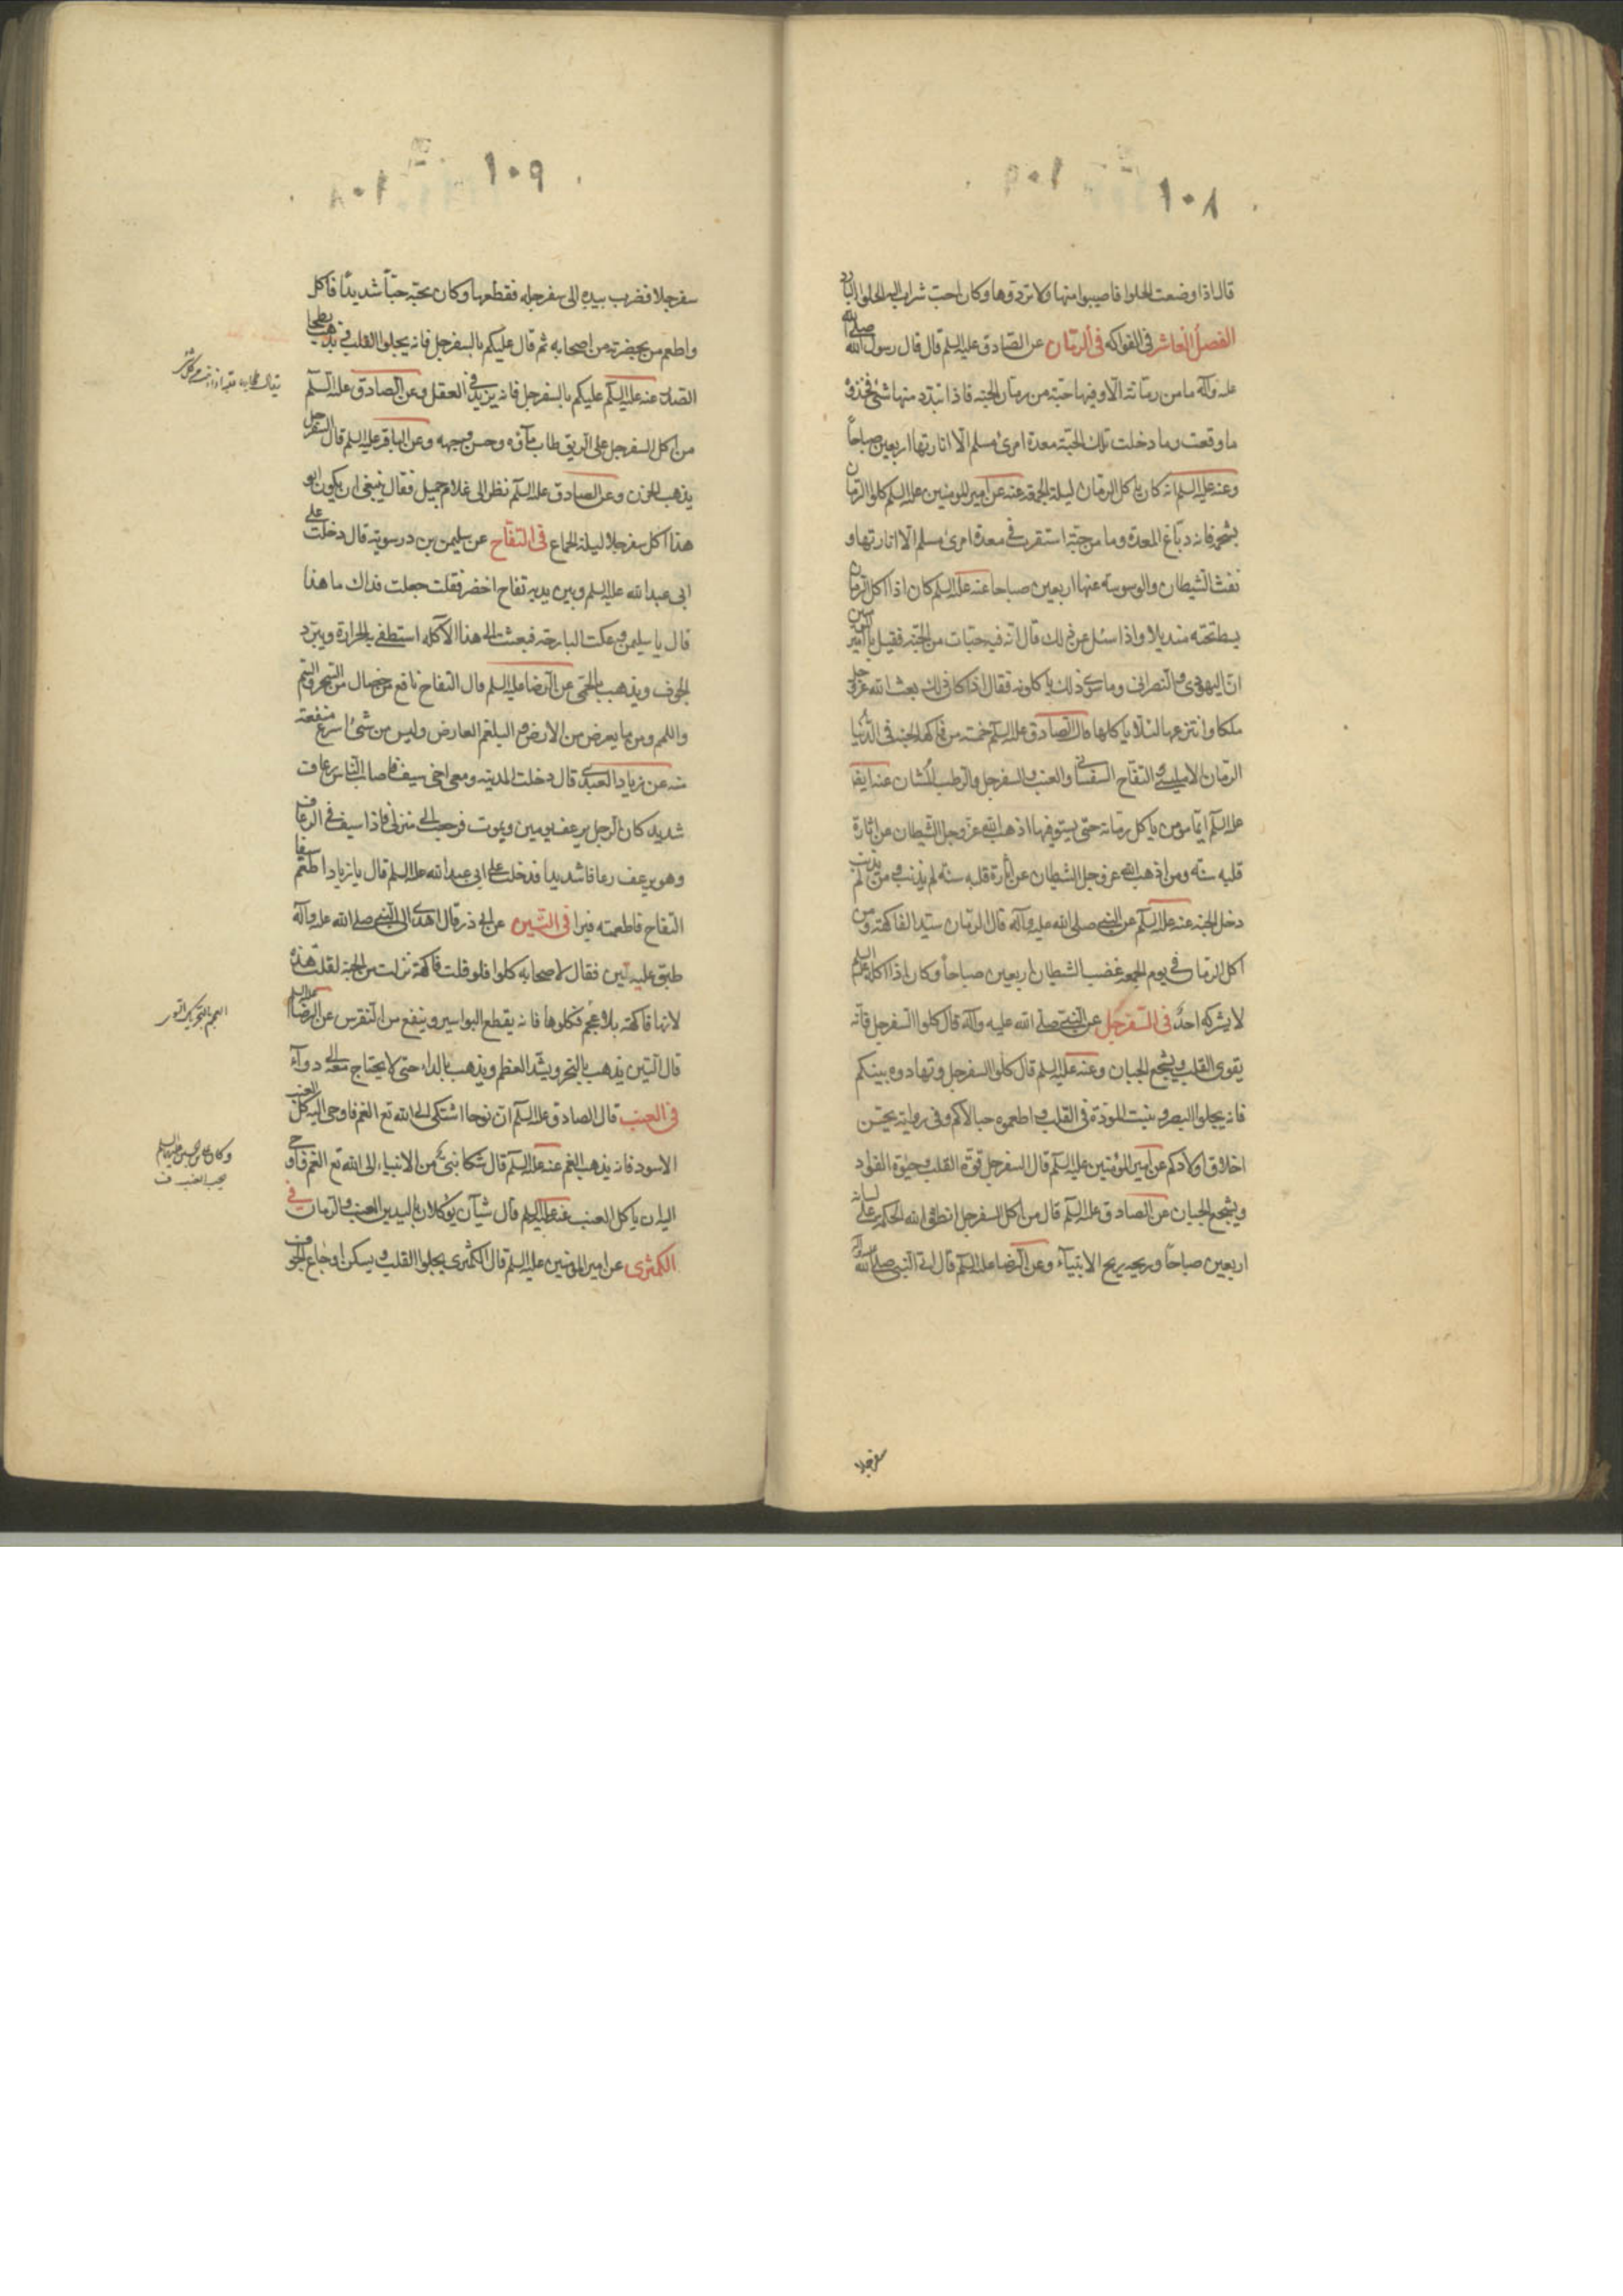 ١٠٨
قال اذا وضعت الحلوا فاصيبوا منها ولا تردوها وكان احب شراب اليه الحلوا البارد
الفصل العاشر فى الفواكه فى الرمان عن الصّادق عليه السلم قال قال رسول الله صلى الله
عليه وآله ما من رمانة الا وفيها حبّة من رمان الجنة فاذا تبدد منها شئ فخذوه
ما وقعت وما دخلت تلك الحبّة معدة امرئ مسلم الّا انارتها اربعين صباحاً
وعنه عليه السلم انه كان ياكل الرمان ليلة الجمعة عنه عن امير المومنين عليه السلم كلوا الرمان
بشحمه فانه دباغ المعدة وما من حبّة استقرت فى معدة امرئ مسلم الّا انارتها و
نفث الشيطان والوسوسة عنها اربعين صباحا عنه عليه السلم كان اذا اكل الرمان
بسط تحته منديلا واذا سئل عن ذلك قال انّه فيه حبات من الجنة فقيل يا امير المومنين
انّ اليهودى والنصرانى وما سوى ذلك ياكلونه فقال اذا كان ذلك بعث الله عز وجل
ملكا وانتزعها لئلا ياكلها قال الصّادق عليه السلم خمسة من فاكهة الجنة فى الدّنيا
الرمان الامليسى والتفاح السفسانى والعنب والسفرجل والرطب المشان عنه ايضا
عليه السلم ايّما مؤمن ياكل رمانة حتى يستوفيها اذهب الله عز وجل الشيطان عن انارة
قلبه سنة ومن اذهب الله عز وجل الشيطان عن انارة قلبه سنة لم يذنب ومن لم يذنب
دخل الجنة عنه عليه السلم عن النبى صلى الله عليه وآله قال الرمان سيّد الفاكهة ومن
اكل الرمان فى يوم الجمعة غضب الشيطان اربعين صباحاً وكان اذا اكله عليه السلم
لا يشركه احدٌ فى السّفرجل عن النبى صلى الله عليه وآله قال كلوا السفرجل فانه
يقوى القلب ويشجع الجبان وعنه عليه السلم قال كلوا السفرجل وتهادوه بينكم
فانه يجلوا البصر وينبت المودة فى القلب واطعموه حبالاكم وفى رواية يحسّن
اخلاق اولادكم عن امير المؤمنين عليه السلم قال السفرجل قوّة القلب وحيوة الفؤاد
ويشجع الجبان عن الصادق عليه السلم قال من اكل السفرجل انطق الله الحكمة على لسانه
اربعين صباحاً وريحه ريح الانبيآء وعن الرضا عليه السلم قال اتى النبى صلى الله عليه وآله
سفرجلا
١٠٩
سفرجلا فضرب بيده الى سفرجله فقطعها وكان يحبّه حبّاً شديداً فاكل
واطعم من بحضرته من اصحابه ثم قال عليكم بالسفرجل فانه يجلوا القلب ويذهب بطخا
الصّدر عنه عليه السلم عليكم بالسفرجل فانه يزيد فى العقل وعن الصادق عليه السلم
من اكل السفرجل على الريق طاب مآؤه وحسن وجهه وعن الباقر عليه السلم قال السفرجل
يذهب الحزن وعن الصادق عليه السلم نظر الى غلام جميل فقال ينبغى ان يكون ابو
هذا اكل سفرجلا ليلة الجماع فى التفّاح عن سليمن بن درسويه قال دخلت على
ابى عبدالله عليه السلم وبين يديه تفاح اخضر فقلت جعلت فداك ما هذا
قال يا سليمن وعكت البارحة فبعثت الى هذا لآكله استطفى به الحرارة ويبرّد
الجوف ويذهب بالحمّى عن الرّضا عليه السلم قال التفاح نافع من خصال من السّحر والسّم
واللمم ومن ما يعرض من الارض والبلغم العارض وليس من شئ اسرع منفعة
منه عن زياد العبدى قال دخلت المدينة ومعى اخى سيف فاصاب الناس رعاف
شديد كان الرجل يرعف يومين ويموت فرجعت الى منزلى فاذا سيف فى الرعاف
وهو يرعف رعافا شديدا فدخلت على ابى عبدالله عليه السلم قال يا زياد اطعم سيفا
التفاح فاطعمته فبرا فى التّين عن ابى ذر قال اهدى الى النبى صلى الله عليه وآله
طبق عليه تين فقال لاصحابه كلوا فلو قلت فاكهة نزلت من الجنة لقلت هذه
لانها فاكهة بلا عجم فكلوها فانه يقطع البواسير وينفع من النقرس عن الرضا عليه السلم
العجم بالتحريك النوى
قال التين يذهب بالبخر ويشد العظم ويذهب بالداء حتى لا يحتاج معه الى دوآء
فى العنب قال الصادق عليه السلم ان نوحا اشتكى الى الله تع الغم فاوحى اليه كل العنب
الاسود فانه يذهب الغم عنه عليه السلم قال شكا نبىّ من الانبياء الى الله تع الغم فاوحى
وكان على بن الحسين عليه السلم
يحب العنب
اليه ان ياكل العنب عنه عليه السلم قال شيآن يؤكلان باليدين العنب والرمان فى
الكمثرى عن امير المومنين عليه السلم قال الكمثرى يجلوا القلب ويسكن اوجاع الجوف